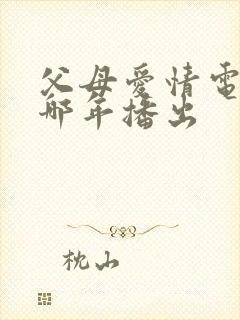 父母爱情電
哪年播出
枕山